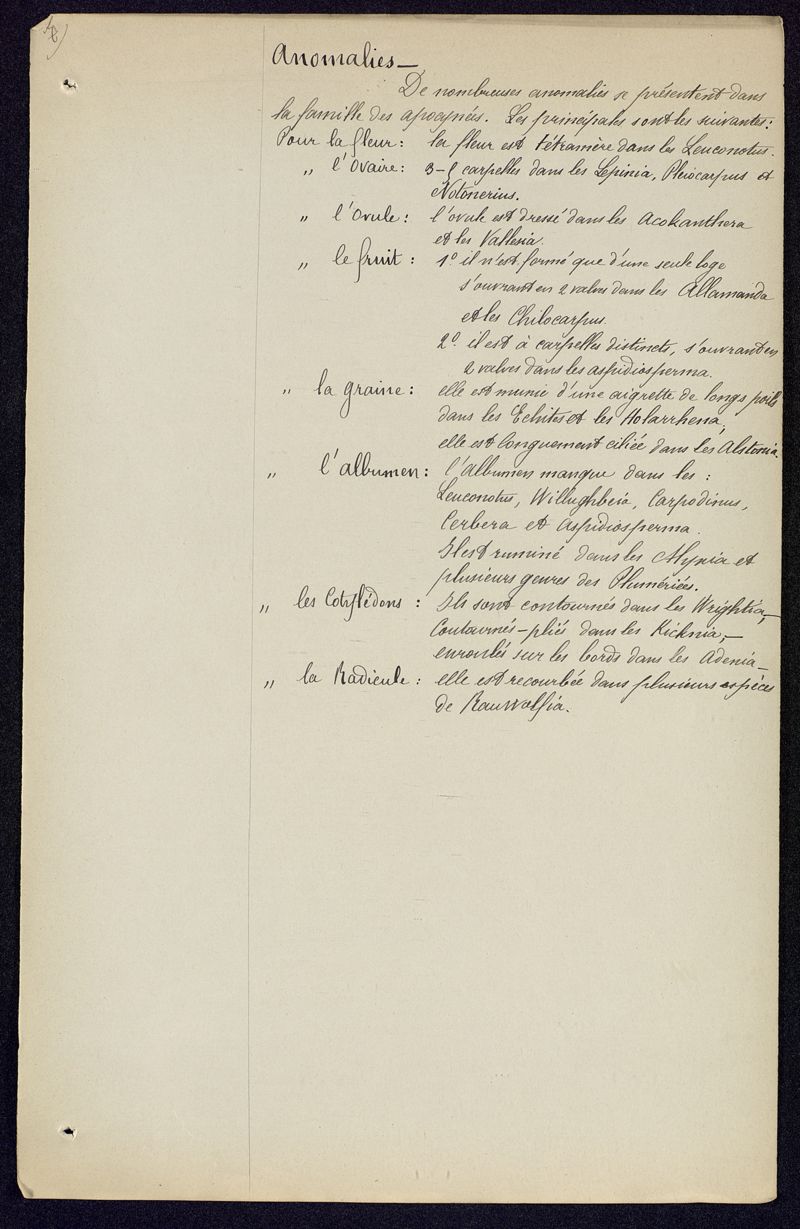 Anomalies —
De nombreuses anomalies se présentent dans
la famille des apocynées. Les principales sont les suivantes :
Pour la fleur : la fleur est tétramère dans les Leuconotus.
„ l'Ovaire : 3-5 carpelles dans les Lepinia, Pleiocarpus et
Notonerius.
„ l'ovule : l'ovule est dressé dans les Acokanthera
et les Vallesia.
„ le fruit : 1º il n'est formé que d'une seule loge
s'ouvrant en 2 valves dans les Allamanda
et les Chilocarpus.
2º il est à carpelles distincts, s'ouvrant en
2 valves dans les aspidiosperma.
„ la graine : elle est munie d'une aigrette de longs poils
dans les Echites et les Holarrhena,
elle est longuement ciliée dans les Alstonia.
„ l'albumen : l'albumen manque dans les :
Leuconotus, Willughbeia, Carpodinus,
Cerbera et Aspidiosperma.
Il est ruminé dans les Alyxia et
plusieurs genres des Plumériées.
„ les Cotylédons : Ils sont contournés dans les Wrightia, —
Contournés-pliés dans les Kicknia, —
enroulés sur les bords dans les Adenia —
„ la Radicule : elle est recourbée dans plusieurs espèces
de Rauwolfia.